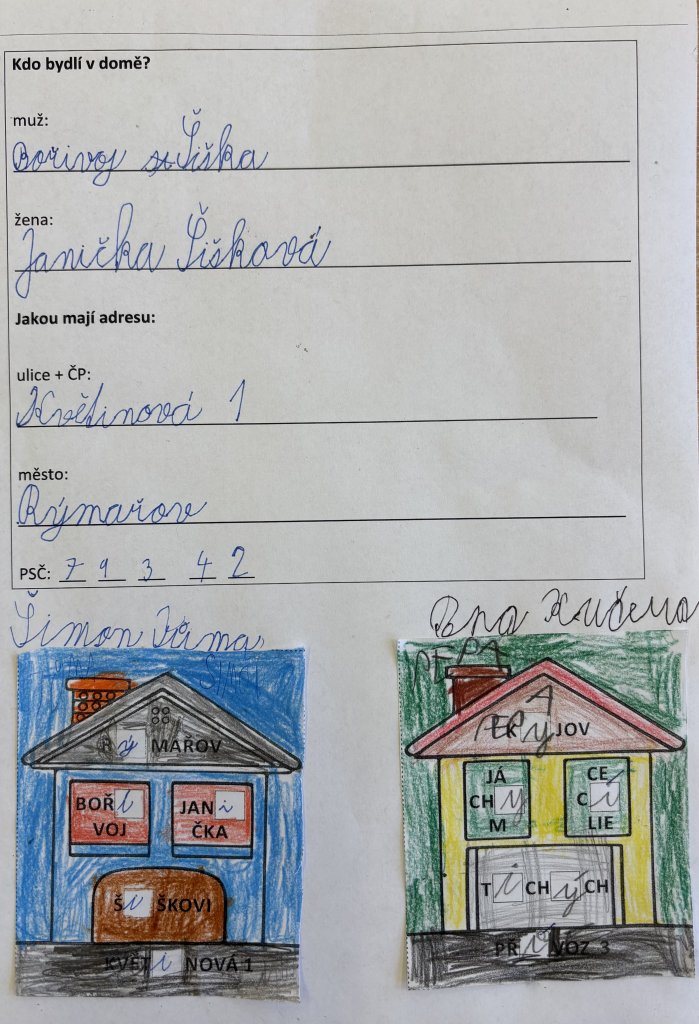 Kdo bydlí v domě?
muž:
Bořivoj Šiška
žena:
Janička Šišková
Jakou mají adresu:
ulice + ČP:
Květinová 1
město:
Rýmařov
PSČ: 7 9 3 4 2
Šimon
RýMAŘOV
BOŘi
VOJ
JANi
ČKA
ŠiŠKOVI
KVĚTiNOVÁ 1
JÁ
CHy
M
CE
Ci
LIE
TiCHýCH
PŘíVOZ 3